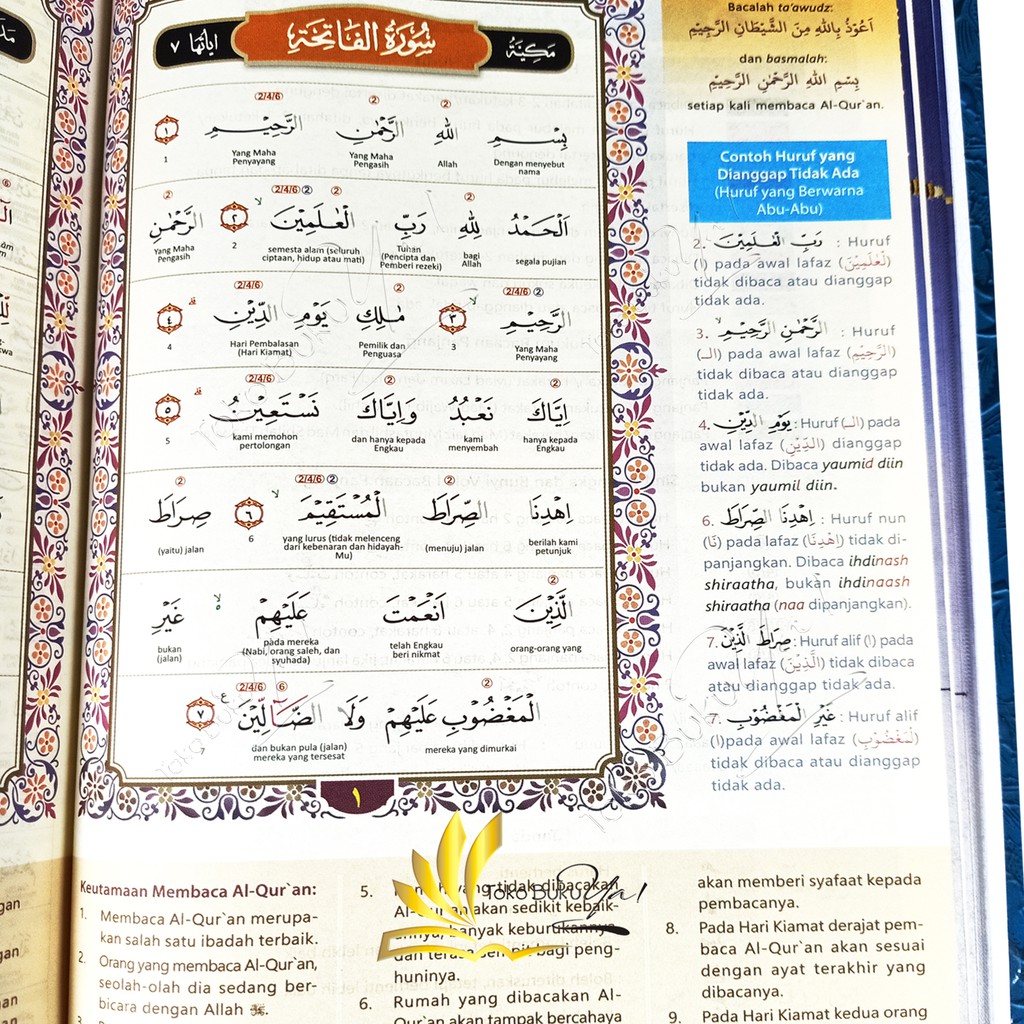 سُوْرَةُ الْفَاتِحَةِ
مَكِّيَّةٌ
اٰيَاتُهَا ٧
2/4/6 2 2
بِسْمِ اللّٰهِ الرَّحْمٰنِ الرَّحِيْمِ ١
Dengan menyebut nama
Allah
Yang Maha Pengasih
Yang Maha Penyayang
1
2/4/6 2 2 2 2
اَلْحَمْدُ لِلّٰهِ رَبِّ الْعٰلَمِيْنَ ٢ الرَّحْمٰنِ
segala pujian
bagi Allah
Tuhan (Pencipta dan Pemberi rezeki)
semesta alam (seluruh ciptaan, hidup atau mati)
2
Yang Maha Pengasih
2/4/6 2 2/4/6 2
الرَّحِيْمِ ٣ مٰلِكِ يَوْمِ الدِّيْنِ ٤
Yang Maha Penyayang
3
Pemilik dan Penguasa
Hari Pembalasan (Hari Kiamat)
4
2/4/6 2 2
اِيَّاكَ نَعْبُدُ وَاِيَّاكَ نَسْتَعِيْنُ ٥
hanya kepada Engkau
kami menyembah
dan hanya kepada Engkau
kami memohon pertolongan
5
2 2/4/6 2 2
اِهْدِنَا الصِّرَاطَ الْمُسْتَقِيْمَ ٦ صِرَاطَ
berilah kami petunjuk
(menuju) jalan
yang lurus (tidak melenceng dari kebenaran dan hidayah-Mu)
6
(yaitu) jalan
2
الَّذِيْنَ اَنْعَمْتَ عَلَيْهِمْ غَيْرِ
orang-orang yang
telah Engkau beri nikmat
pada mereka (Nabi, orang saleh, dan syuhada)
bukan (jalan)
2/4/6 6 2
الْمَغْضُوْبِ عَلَيْهِمْ وَلَا الضَّاۤلِّيْنَ ٧
mereka yang dimurkai
dan bukan pula (jalan) mereka yang tersesat
7
١
Bacalah ta'awudz:
اَعُوْذُ بِاللّٰهِ مِنَ الشَّيْطَانِ الرَّجِيْمِ
dan basmalah:
بِسْمِ اللّٰهِ الرَّحْمٰنِ الرَّحِيْمِ
setiap kali membaca Al-Qur`an.
Contoh Huruf yang
Dianggap Tidak Ada
(Huruf yang Berwarna
Abu-Abu)
2. رَبِّ الْعٰلَمِيْنَ : Huruf
(ا) pada awal lafaz (لْعٰلَمِيْنَ)
tidak dibaca atau dianggap
tidak ada.
3. الرَّحْمٰنِ الرَّحِيْمِ : Huruf
(الـ) pada awal lafaz (الرَّحِيْمِ)
tidak dibaca atau dianggap
tidak ada.
4. يَوْمِ الدِّيْنِ : Huruf (الـ) pada
awal lafaz (الدِّيْنِ) dianggap
tidak ada. Dibaca yaumid diin
bukan yaumil diin.
6. اِهْدِنَا الصِّرَاطَ : Huruf nun
(نَا) pada lafaz (اِهْدِنَا) tidak di-
panjangkan. Dibaca ihdinash
shiraatha, bukan ihdinaash
shiraatha (naa dipanjangkan).
7. صِرَاطَ الَّذِيْنَ : Huruf alif (ا) pada
awal lafaz (الَّذِيْنَ) tidak dibaca
atau dianggap tidak ada.
7. غَيْرِ الْمَغْضُوْبِ : Huruf alif
(ا) pada awal lafaz (لْمَغْضُوْبِ)
tidak dibaca atau dianggap
tidak ada.
Keutamaan Membaca Al-Qur`an:
1. Membaca Al-Qur`an merupa-
kan salah satu ibadah terbaik.
2. Orang yang membaca Al-Qur`an,
seolah-olah dia sedang ber-
bicara dengan Allah ﷻ.
5. yang tidak dibacakan
Al-Qur`an akan sedikit kebaik-
annya, banyak keburukannya,
dan terasa sempit bagi peng-
huninya.
6. Rumah yang dibacakan Al-
Qur`an akan tampak bercahaya
akan memberi syafaat kepada
pembacanya.
8. Pada Hari Kiamat derajat pem-
baca Al-Qur`an akan sesuai
dengan ayat terakhir yang
dibacanya.
9. Pada Hari Kiamat kedua orang
TOKO BUKU